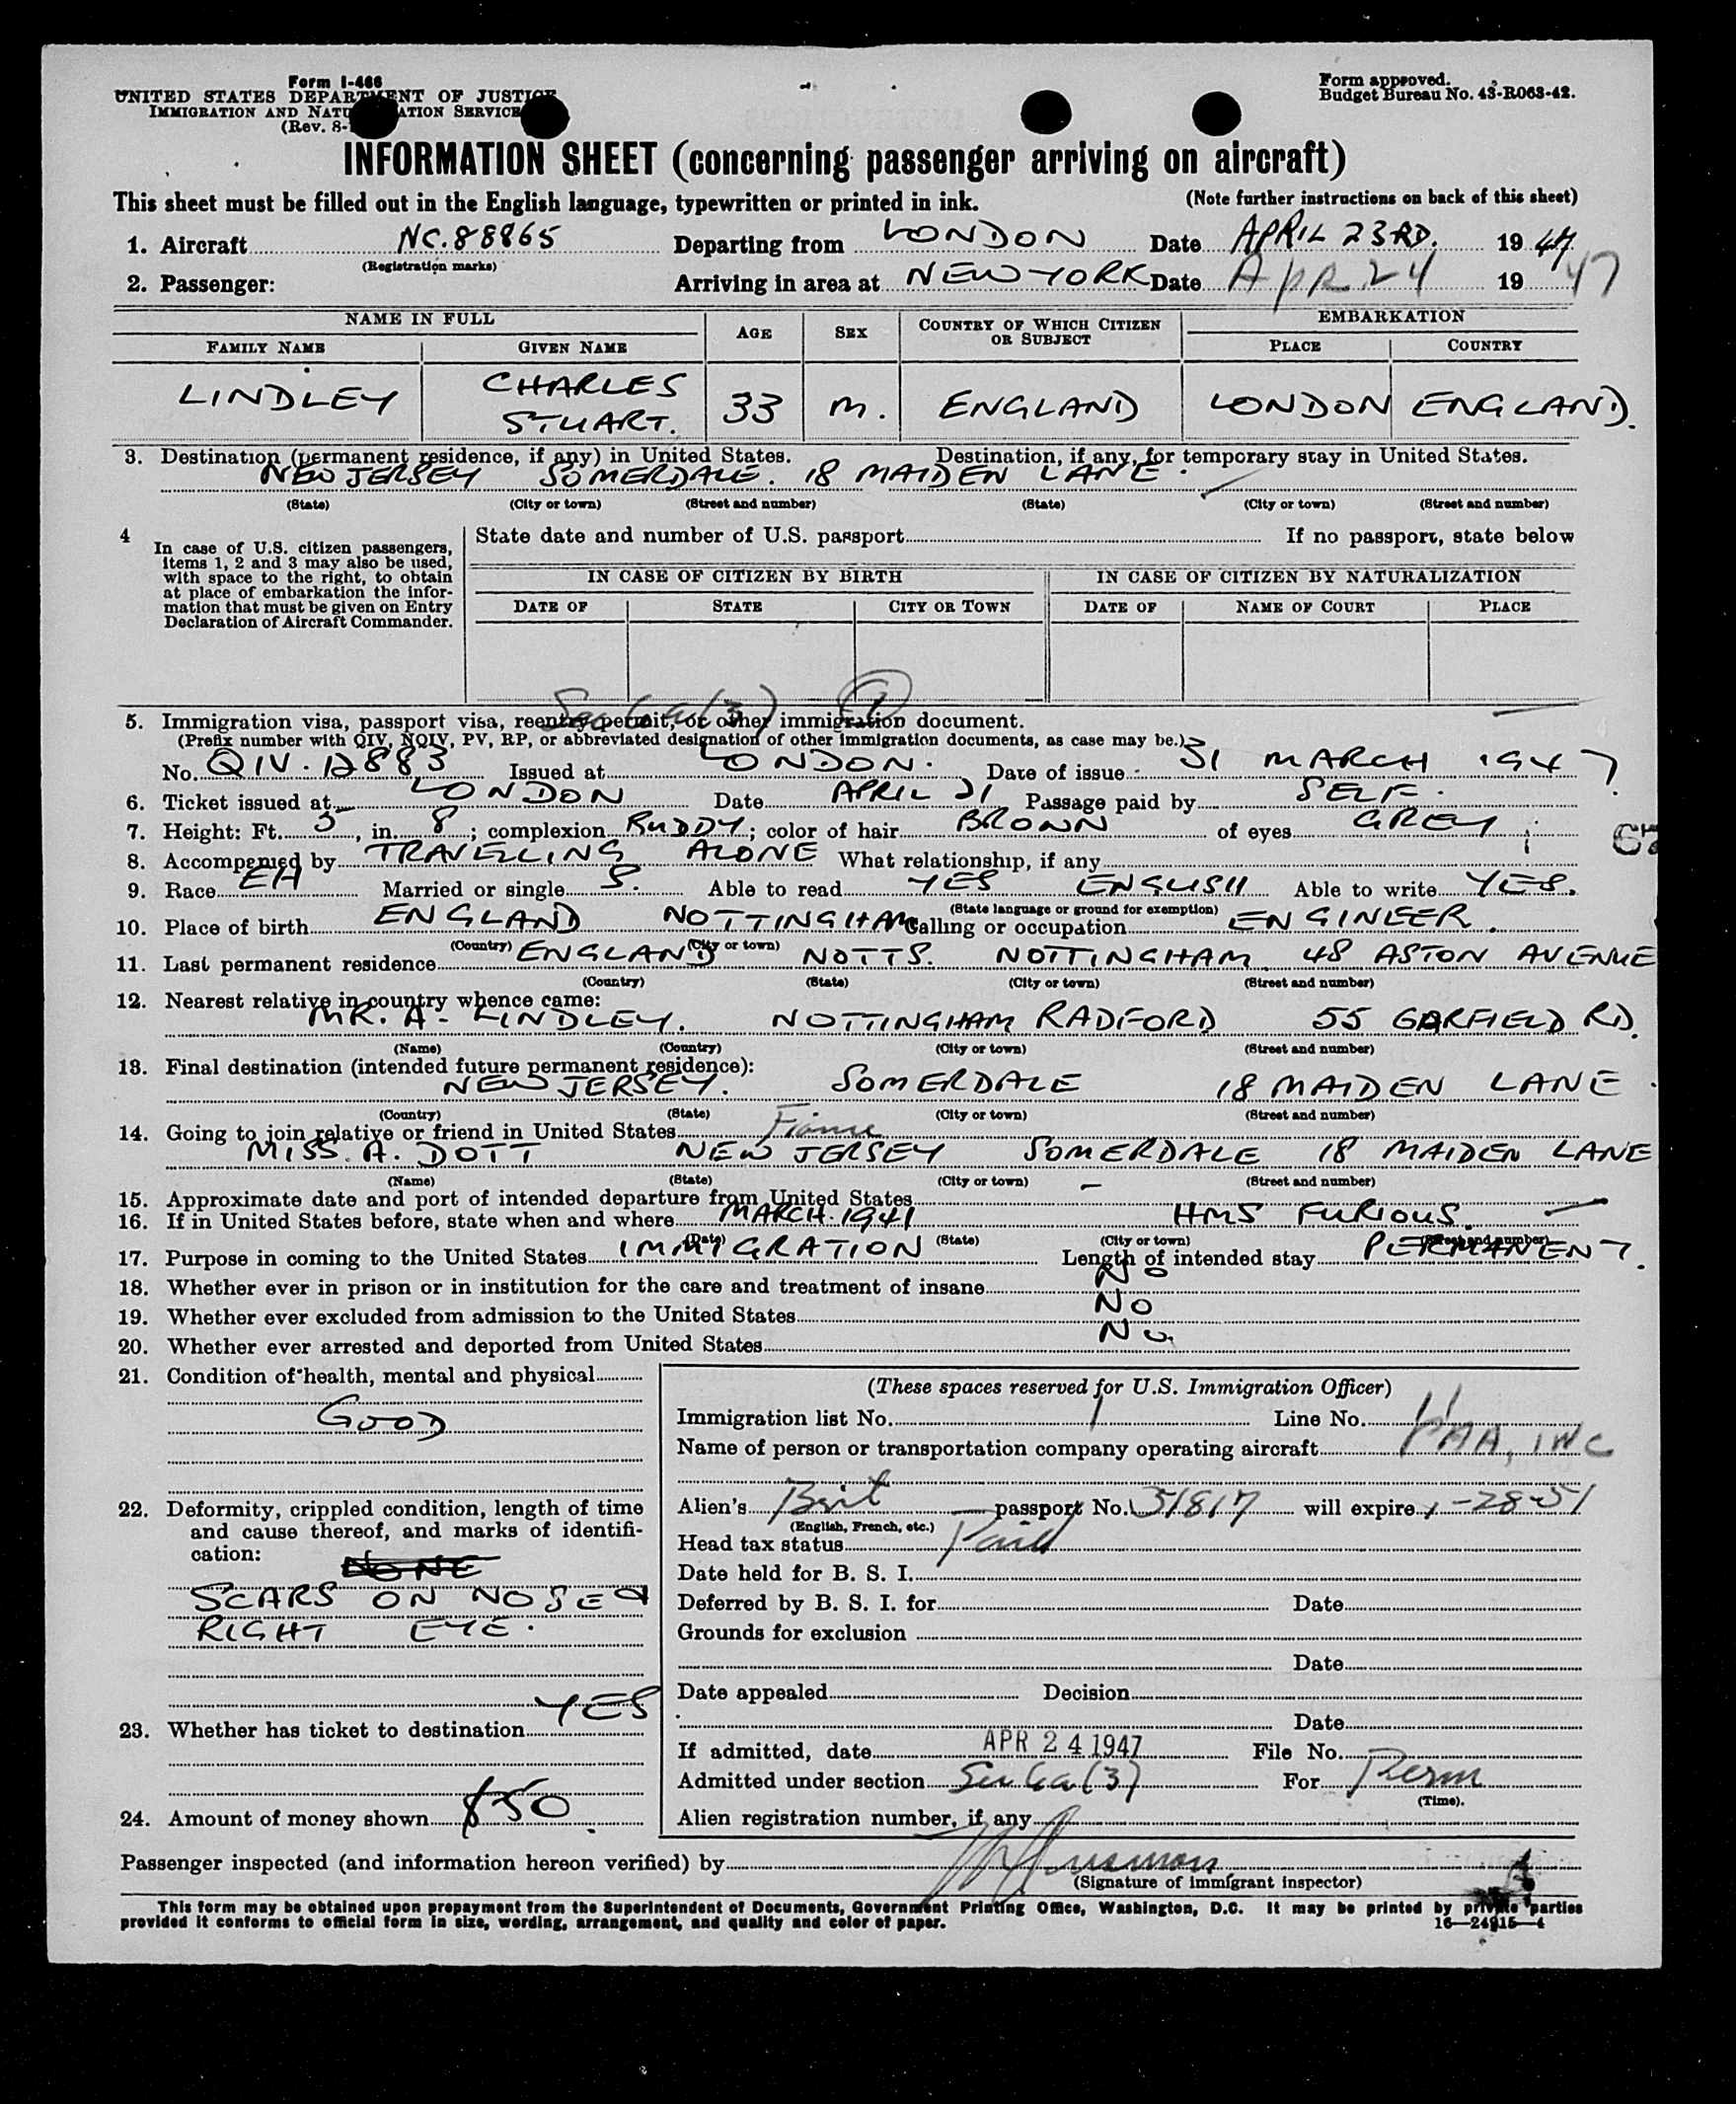 Form I-466
UNITED STATES DEPARTMENT OF JUSTICE
IMMIGRATION AND SERVICE
(Rev. 8-
Form approved.
Budget Bureau No. 43-R063-42.
INFORMATION SHEET (concerning passenger arriving on aircraft)
This sheet must be filled out in the English language, typewritten or printed in ink. (Note further instructions on back of this sheet)
1. Aircraft NC.88865 Departing from LONDON Date APRIL 23RD. 1947
(Registration marks)
2. Passenger: Arriving in area at NEW YORK Date Apr 24 1947
NAME IN FULL AGE SEX COUNTRY OF WHICH CITIZEN OR SUBJECT EMBARKATION
FAMILY NAME GIVEN NAME PLACE COUNTRY
LINDLEY CHARLES STUART. 33 M. ENGLAND LONDON ENGLAND.
3. Destination (permanent residence, if any) in United States. Destination, if any, for temporary stay in United States.
NEW JERSEY SOMERDALE. 18 MAIDEN LANE.
(State) (City or town) (Street and number) (State) (City or town) (Street and number)
4 In case of U.S. citizen passengers, items 1, 2 and 3 may also be used, with space to the right, to obtain at place of embarkation the information that must be given on Entry Declaration of Aircraft Commander.
State date and number of U.S. passport If no passport, state below
IN CASE OF CITIZEN BY BIRTH IN CASE OF CITIZEN BY NATURALIZATION
DATE OF STATE CITY OR TOWN DATE OF NAME OF COURT PLACE
Sec 6a(3) 1
5. Immigration visa, passport visa, reentry permit, or other immigration document.
(Prefix number with QIV, NQIV, PV, RP, or abbreviated designation of other immigration documents, as case may be.)
No. QIV. 12883 Issued at LONDON. Date of issue 31 MARCH 1947
6. Ticket issued at LONDON Date APRIL 21 Passage paid by SELF.
7. Height: Ft. 5, in. 8; complexion RUDDY; color of hair BROWN of eyes GREY
8. Accompanied by TRAVELLING ALONE What relationship, if any
9. Race EH Married or single S. Able to read YES ENGLISH Able to write YES.
(State language or ground for exemption)
10. Place of birth ENGLAND NOTTINGHAM Calling or occupation ENGINEER.
(Country) (City or town)
11. Last permanent residence ENGLAND NOTTS. NOTTINGHAM 48 ASTON AVENUE
(Country) (State) (City or town) (Street and number)
12. Nearest relative in country whence came:
MR. A. LINDLEY. NOTTINGHAM RADFORD 55 GARFIELD RD.
(Name) (Country) (City or town) (Street and number)
13. Final destination (intended future permanent residence):
NEW JERSEY. SOMERDALE 18 MAIDEN LANE.
(Country) (State) (City or town) (Street and number)
14. Going to join relative or friend in United States Fiance
MISS. A. DOTT NEW JERSEY SOMERDALE 18 MAIDEN LANE
(Name) (State) (City or town) (Street and number)
15. Approximate date and port of intended departure from United States —
16. If in United States before, state when and where MARCH. 1941 HMS FURIOUS.
(Date) (State) (City or town) (Street and number)
17. Purpose in coming to the United States IMMIGRATION Length of intended stay PERMANENT.
18. Whether ever in prison or in institution for the care and treatment of insane NO
19. Whether ever excluded from admission to the United States NO
20. Whether ever arrested and deported from United States NO
21. Condition of health, mental and physical
GOOD
22. Deformity, crippled condition, length of time and cause thereof, and marks of identification:
NONE
SCARS ON NOSE &
RIGHT EYE.
23. Whether has ticket to destination YES
24. Amount of money shown $50
(These spaces reserved for U.S. Immigration Officer)
Immigration list No. 1 Line No. 11
Name of person or transportation company operating aircraft PAA, INC
Alien's Brit passport No. 151817 will expire 1-28-51
(English, French, etc.)
Head tax status Paid
Date held for B. S. I.
Deferred by B. S. I. for Date
Grounds for exclusion
Date
Date appealed Decision
Date
If admitted, date APR 24 1947 File No.
Admitted under section Sec 6a(3) For Perm
(Time).
Alien registration number, if any
Passenger inspected (and information hereon verified) by
(Signature of immigrant inspector)
This form may be obtained upon prepayment from the Superintendent of Documents, Government Printing Office, Washington, D.C. It may be printed by private parties
provided it conforms to official form in size, wording, arrangement, and quality and color of paper. 16—24915—4